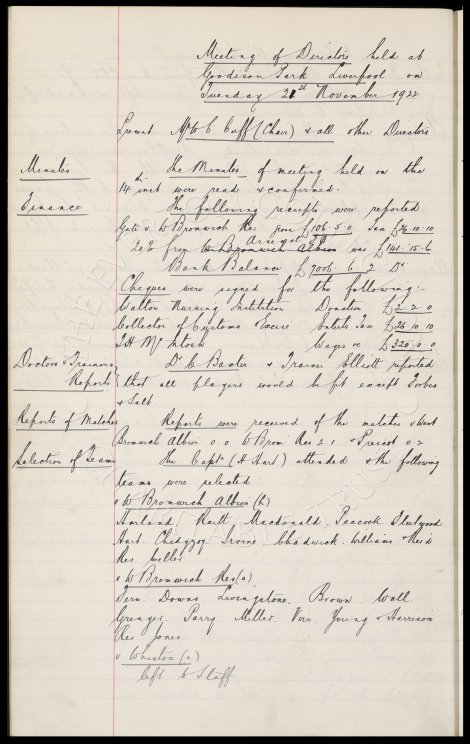 Meeting of Directors held at
Goodison Park Liverpool on
Tuesday 21st November 1922
Present Mr W C Cuff (Chair) & all other Directors
Minutes
The Minutes of meeting held on the
14th inst were read & confirmed.
Finance
The following receipts were reported
Gate v. W Bromwich Res from £106. 5. 0 Tax £26. 10. 10
20% from W Bromwich Albion Arsenal was £141. 15. 6
Bank Balance £7006. 6. 2 Dr
Cheques were signed for the following:-
Walton Nursing Institution Donation £2. 2. 0
Collector of Customs Excise Entert Tax £26. 10. 10
T.H. McIntosh Wages &c £320. 0. 0
Doctors & Trainers
Reports
Dr C Baxter & Trainer Elliott reported
that all players would be fit except Forbes
& Salt.
Reports of Matches
Reports were received of the matches v West
Bromwich Albion 0.0 W Brom Res 2.1 & Prescot 0.2
Selection of Teams
The Captn (H Hart) attended & the following
teams were selected
v W Bromwich Albion (h)
Harland Raitt Macdonald. Peacock. Fleetwood
Hart. Chedgzoy Irvine Chadwick. Williams & Reid
Res Miller
v W Bromwich Res (a)
Fern. Downs. Livingstone. Brown. Wall
Grenyer. Parry. Miller. Virr. Young & Harrison
Res Jones
v Whiston (a)
left to Staff